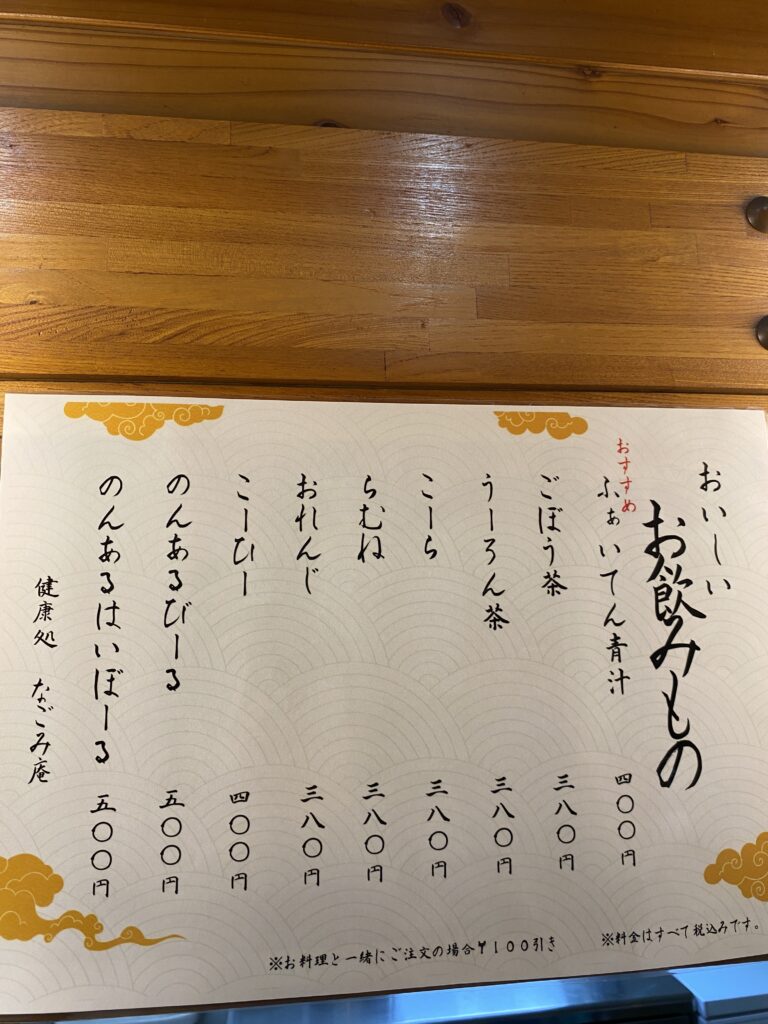 おいしい
お飲みもの
おすすめ
ふぁいてん青汁 四〇〇円
ごぼう茶 三八〇円
うーろん茶 三八〇円
こーら 三八〇円
らむね 三八〇円
おれんじ 三八〇円
こーひー 四〇〇円
のんあるびーる 五〇〇円
のんあるはいぼーる 五〇〇円
健康処 なごみ庵
※料金はすべて税込みです。
※お料理と一緒にご注文の場合¥100引き